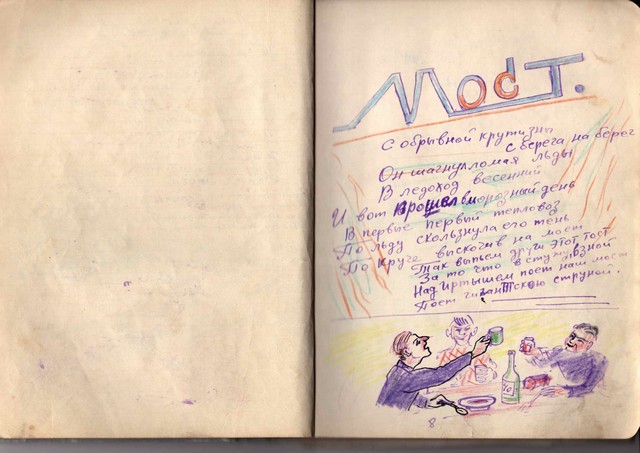 Мост.
С обрывной крутизны
с берега на берег
Он шагнул ломая льды
В ледоход весенний
И вот прошел в морозный день
В первые первый тепловоз
По льду скользнула его тень
По круче выскочив на мост
Так выпьем други этот тост
За то что в стуж
Над Иртышем поет наш мост
Поет гигантскою струной.
8